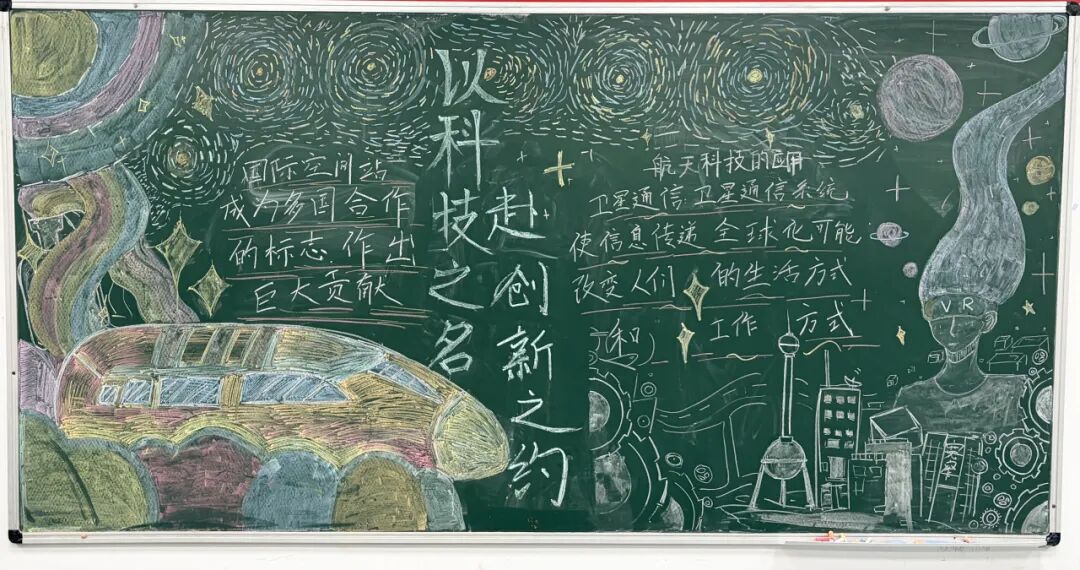 以科技之名
赴创新之约
国际空间站
成为多国合作
的标志,作出
巨大贡献
航天科技的应用
卫星通信:卫星通信系统
使信息传递全球化可能
改变人们的生活方式
和工作方式
VR